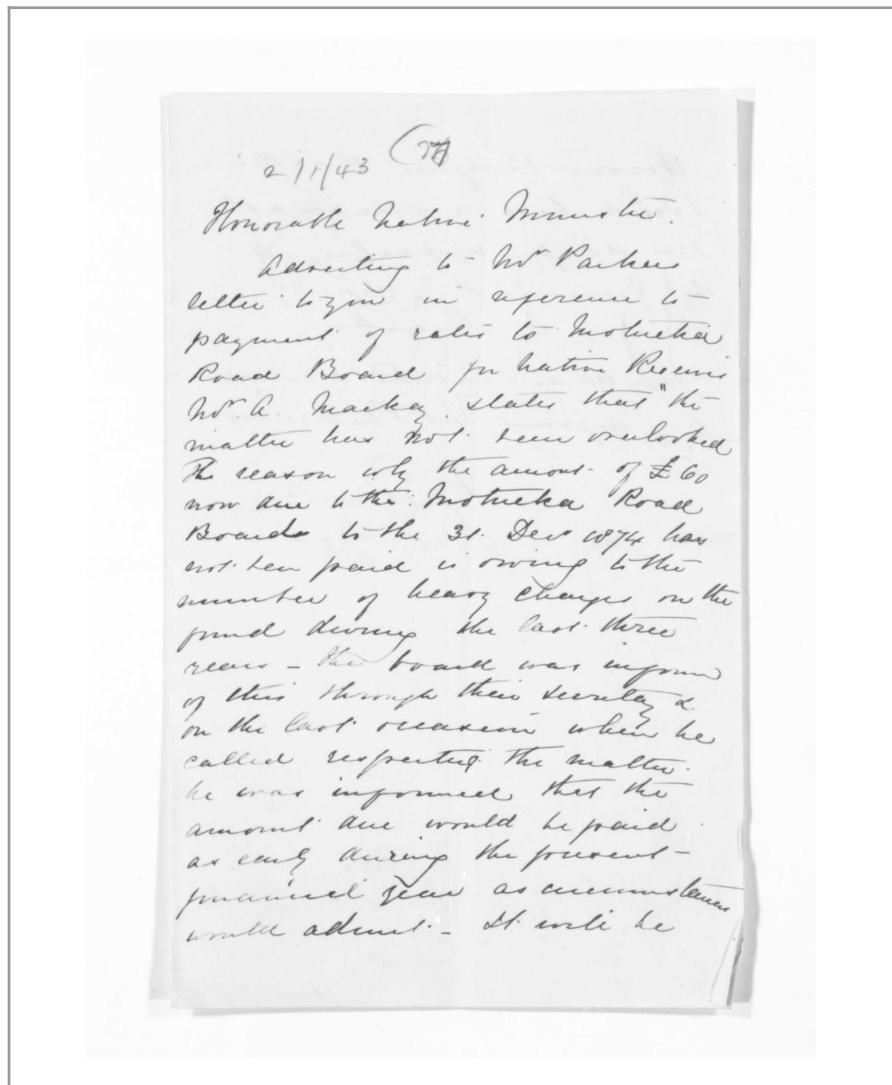 2/1/43
Honorable Native Minister.
Adverting to Mr Parkers
letter to you in reference to
payment of rates to Motueka
Road Board for Native Reserves
Mr A. Mackay states that "the
matter has not been overlooked
The reason why the amount of £60
now due to the Motueka Road
Board to the 31 Decr 1874 has
not been paid is owing to the
number of heavy charges on the
fund during the last three
years - the board was inform
of this through their secretary &
on the last occasion when he
called respecting the matter.
he was informed that the
amount due would be paid
as early during the present
financial year as circumstances
would admit - It will be